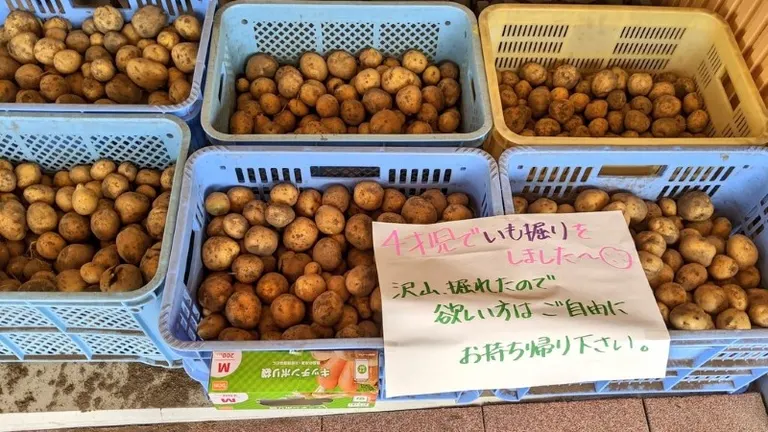 4才児でいも掘りを
しました〜
沢山掘れたので
欲しい方はご自由に
お持ち帰り下さい。
キッチンポリ袋
M
200
M